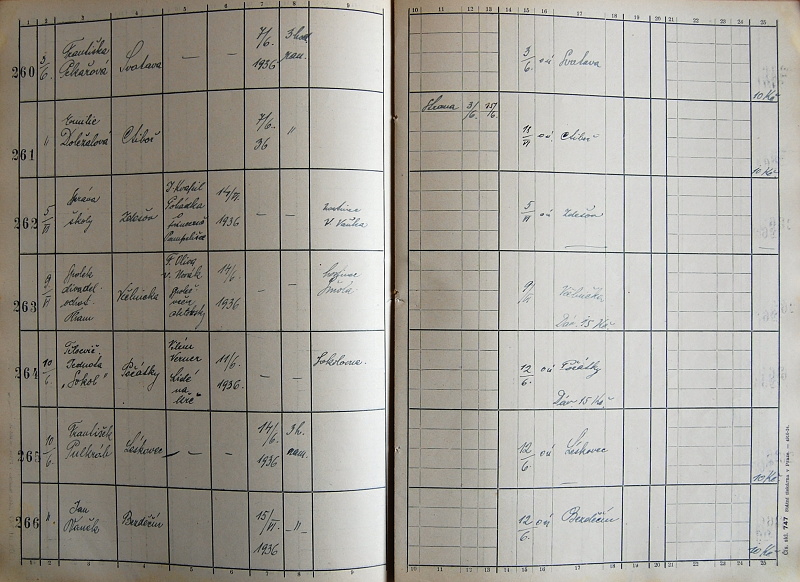 1 2 3 4 5 6 7 8 9
260 3/6. Františka Pekařová Svatava — — 7/6. 1936 3 hod. nam.
261 " Emilie Doležalová Ctiboř 7/6. 36 "
262 5/VI Správa školy Zdešov 14/VI. 1936 — — hostinec V. Vaňka
263 9/VI Spolek divadel. ochot. Včelnička 14/6. 1936 — — hostinec
264 10/6. Tělocvič. Jednota "Sokol" Počátky Vilém Werner "Lidé na kře" 11/6. 1936 — — Sokolovna.
265 10/6. František Leskovec — — 14/6. 1936 3 h. nam.
266 " Jan Vaněk Bezděčín 15/VI. 1936 — "
1 2 3 4 5 6 7 8 9
10 11 12 13 14 15 16 17 18 19 20 21 22 23 24 25
3/6. oú Svatava 10 Kč
Strana 3/6. 11/VI oú Ctiboř 10 Kč
5/VI oú Zdešov —
9/VI Včelnička
Dáv. 15 Kč
12/6. oú Počátky
Dáv 15 Kč
12/6. oú Leskovec 10 Kč
12/6. oú Bezděčín 10 Kč
10 11 12 13 14 15 16 17 18 19 20 21 22 23 24 25
Čís. skl. 747 Státní tiskárna v Praze.